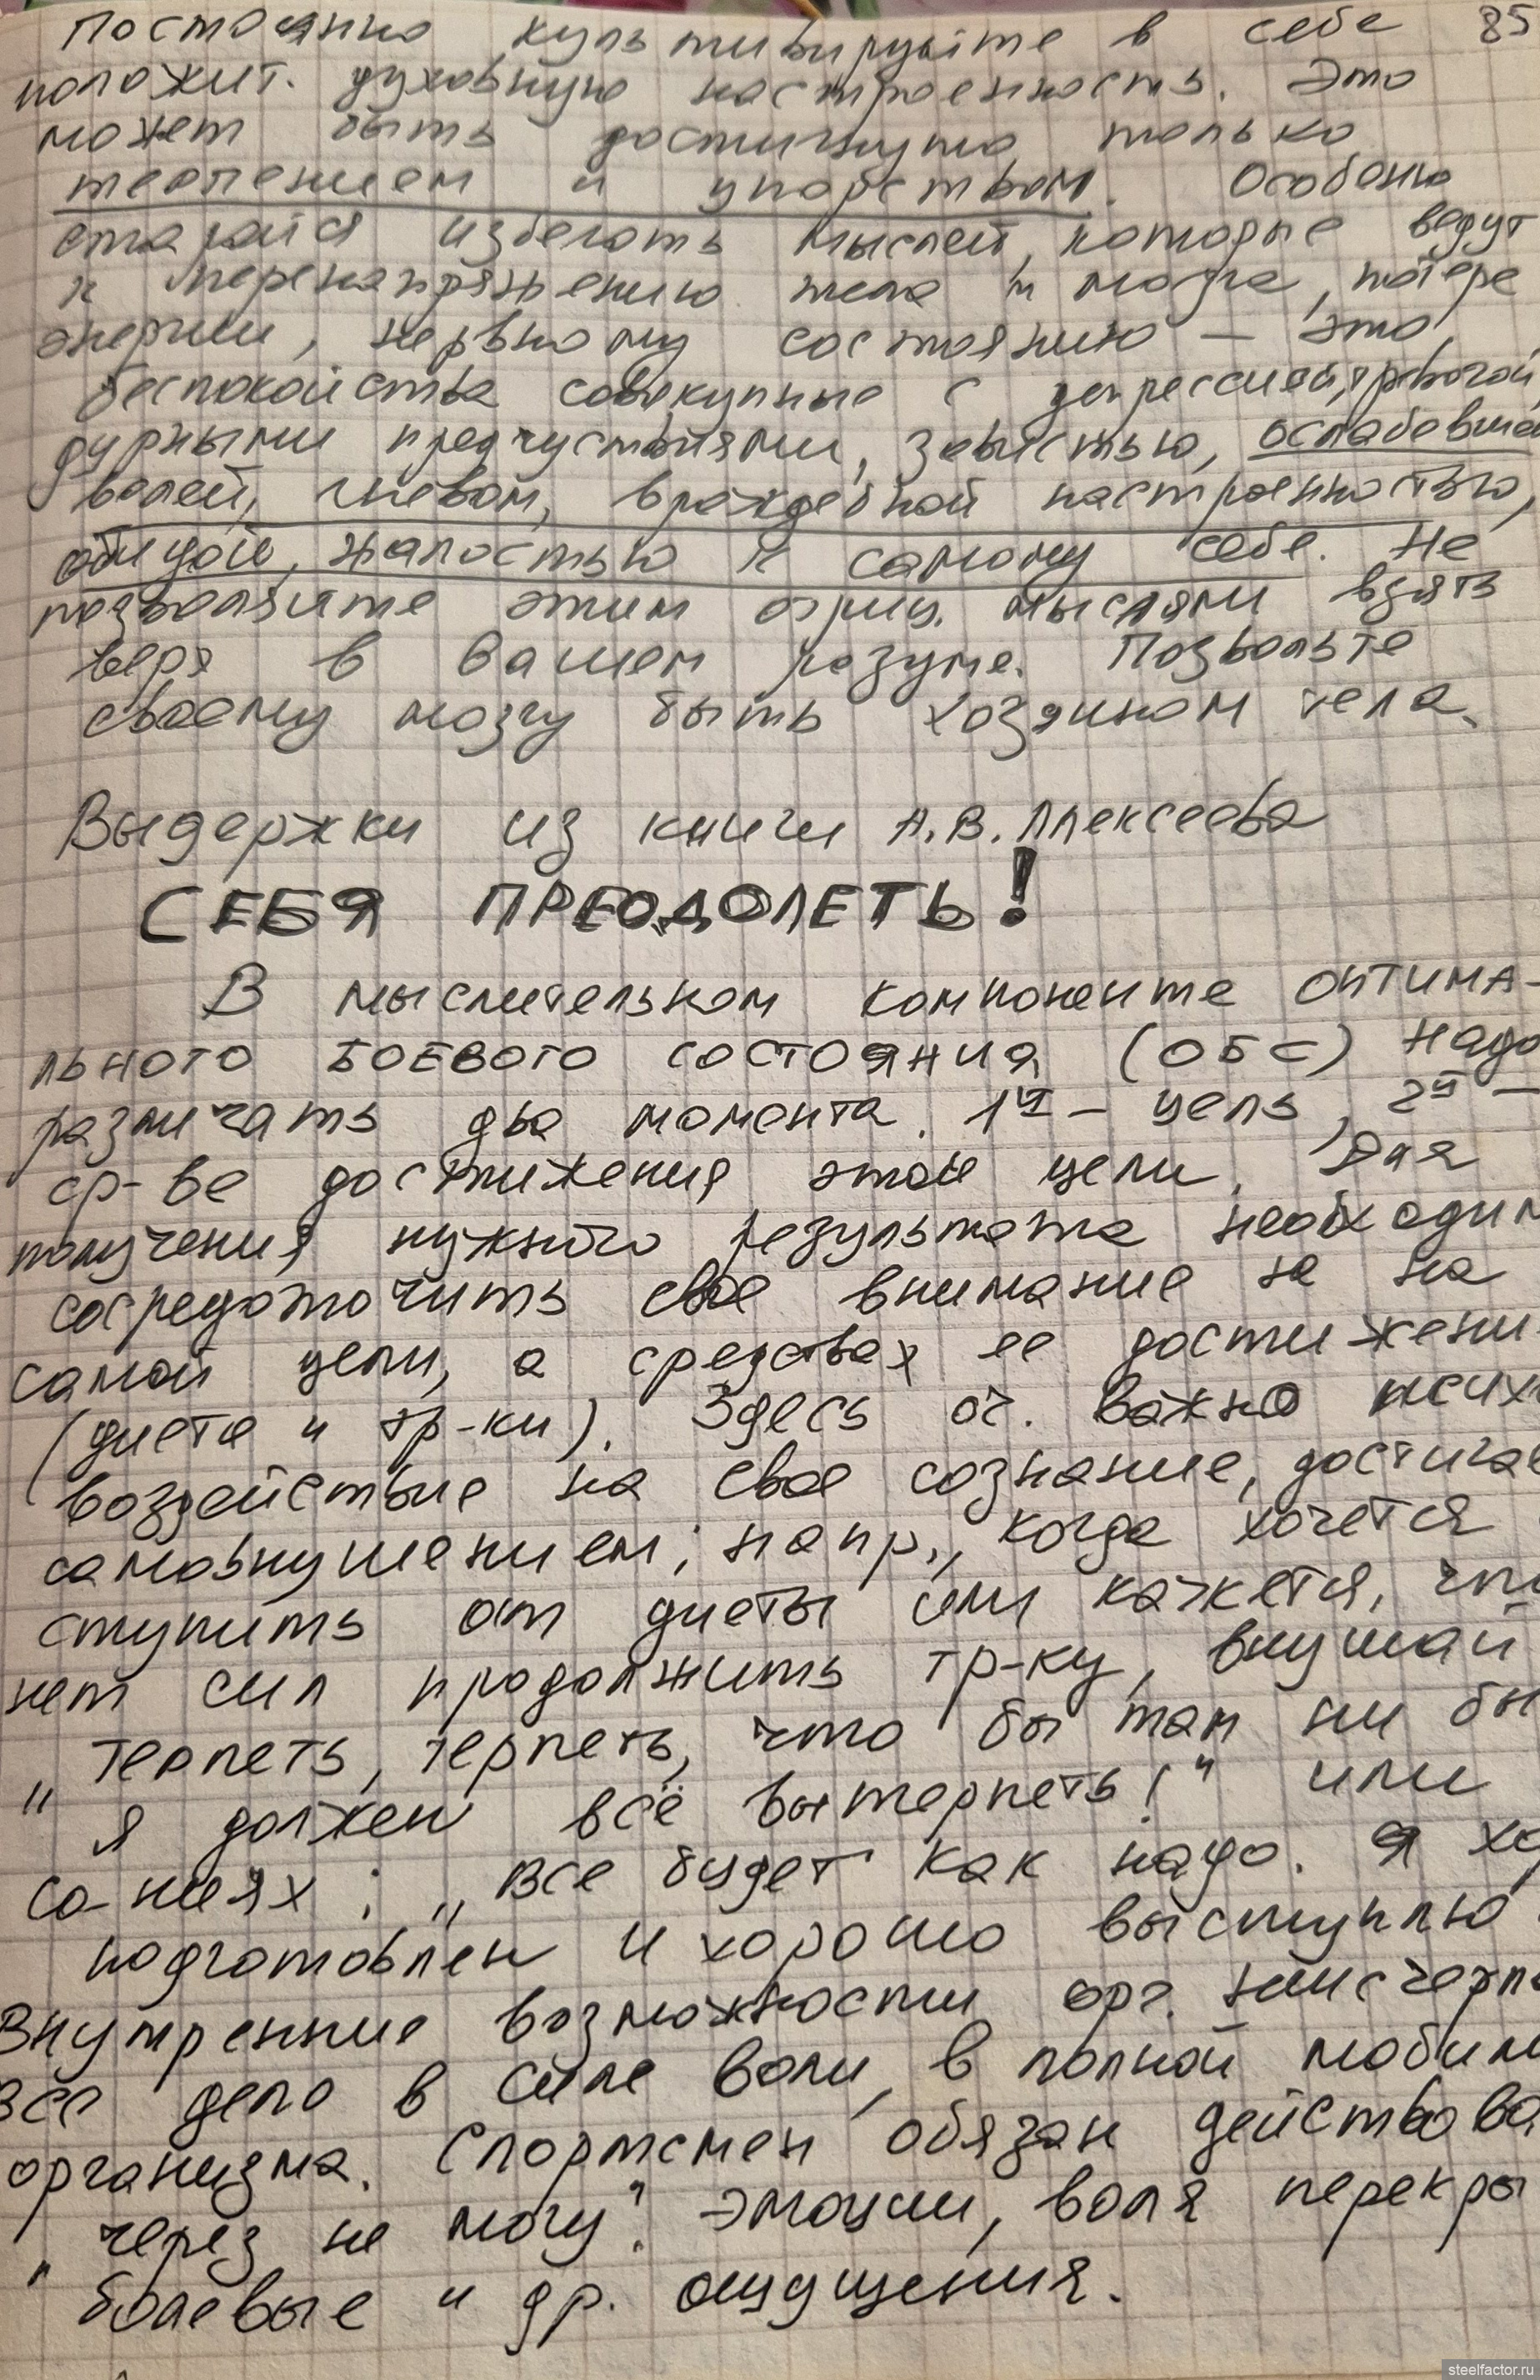 Постоянно культивируйте в себе 85
полож ит. духовную настроенность. Это
может быть достигнуто только
терпением и упорством. Особенно
старайся избегать мыслей, которые ведут
к перенапряжению тела и мозга, потере
энергии, нервному состоянию – это,
беспокойства совокупные с депрессией, тревогой,
дурными предчуствиями, завистью, ослабевшей
волей, гневом, враждебной настроенностью,
обидой, жалостью к самому себе. Не
позволяйте этим отриц. мыслями взять
верх в вашем разуме. Позвольте
своему мозгу быть хозяином тела.
Выдержки из книги А.В. Алексеева
СЕБЯ ПРЕОДОЛЕТЬ!
В мыслительном компоненте ОПТИМА-
льного БОЕВОГО СОСТОЯНИЯ (ОБС) надо
различать два момента. 1й – цель, 2й –
ср-ва достижения этой цели. Для
получения нужного результата необходим
сосредоточить свое внимание не на
самой цели, а средствах ее достижени
(диета и тр-ки). Здесь оч. важно псих
воздействие на свое сознание, достигае
самовнушением; напр., когда хочется
ступить от диеты или кажется, что
нет сил продолжить тр-ку, внушай
"Терпеть, терпеть, что бы там ни бы
" Я должен всё вытерпеть!" или
со-ниях: „Все будет как надо. Я хо
подготовлен и хорошо выступлю
Внутренние возможности орг. неисчерпа
Все дело в силе воли, в полной мобили
организма. Спортсмен обязан действова
"через не могу". Эмоции, воля перекры
болевые и др. ощущения.
steelfactor.ru